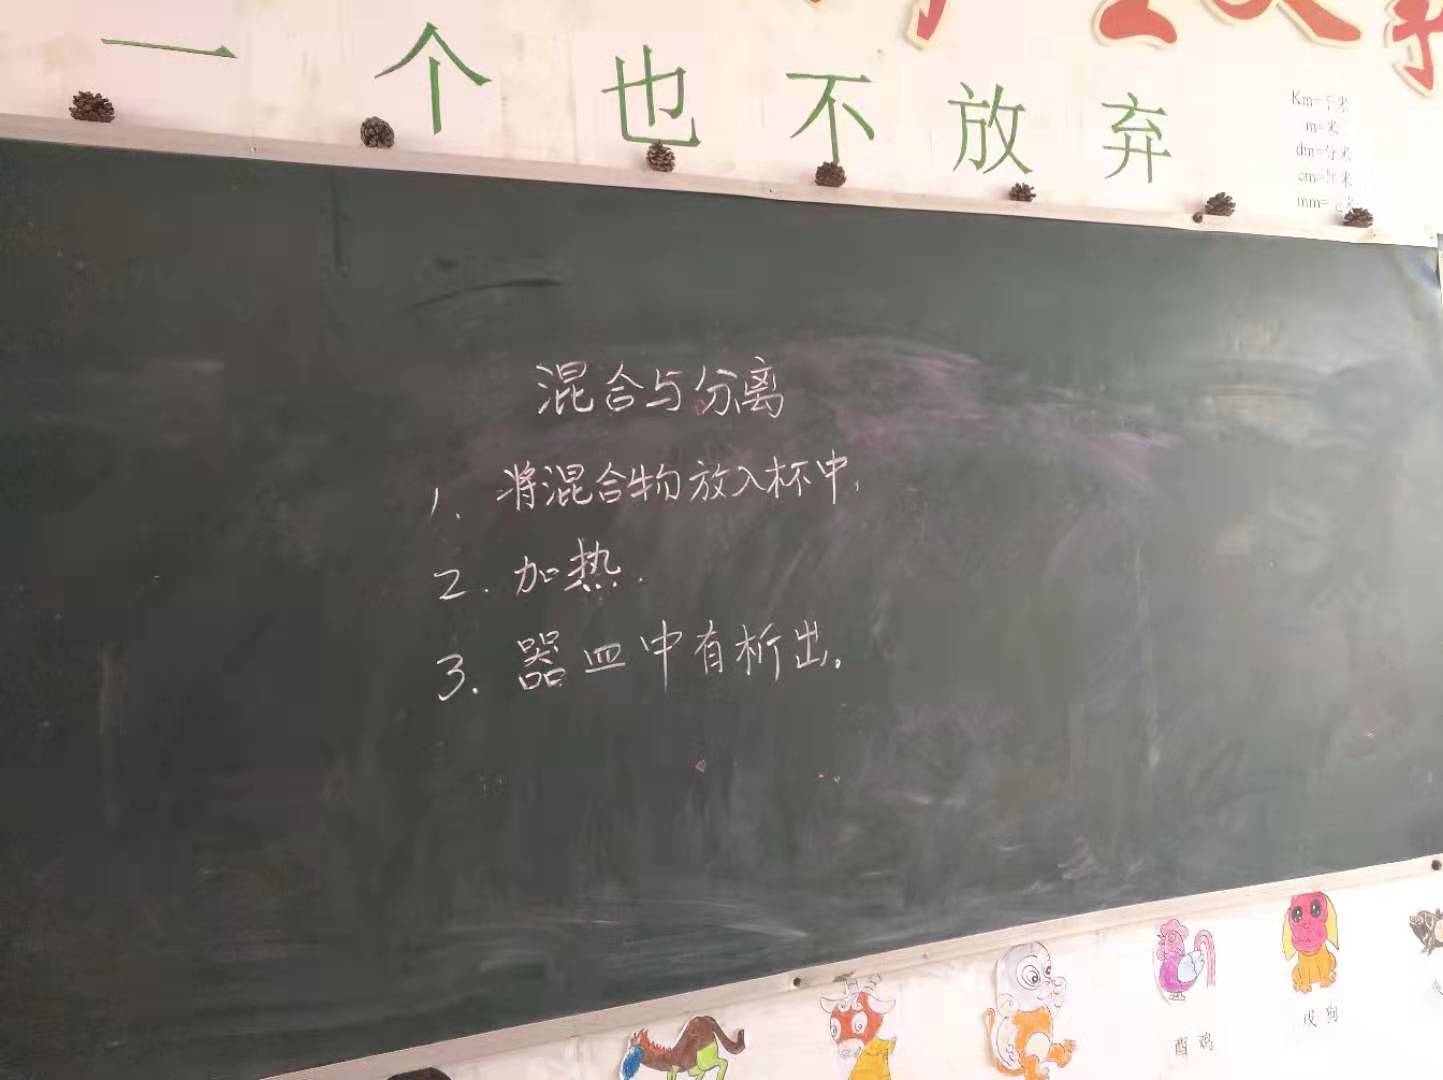 一个也不放弃
Km=千米
m=米
dm=分米
cm=厘米
mm=毫米
混合与分离
1、将混合物放入杯中、
2.加热.
3.器皿中有析出.
酉鸡
戌狗